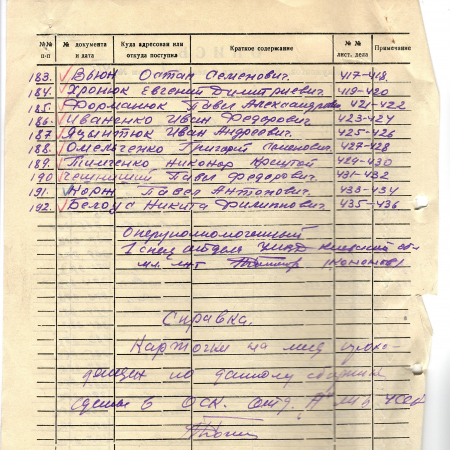 №№ п-п № документа и дата Куда адресован или откуда поступил Краткое содержание №№ лист. дела Примечание
183. Вьюн Остап Семенович. 417-418
184. Хронюк Евгений Димитриевич. 419-420
185. Форманюк Павел Александрович 421-422
186. Иваненко Иван Федорович 423-424
187 Иван Андреевич. 425-426
188. Омельченко Григорий Семенович. 427-428
189. Тимченко Никонор 429-430
190 Павел Федорович. 431-432
191. Корж Павел Антонович. 433-434
192. Белоус Никита Филиппович 435-436
Оперуполномоченный
1 спец отдела УМВД Киевской обл
мл. л-нт
Справка.
Карточки на лиц прохо-
дящих по данному
сданы в отд.